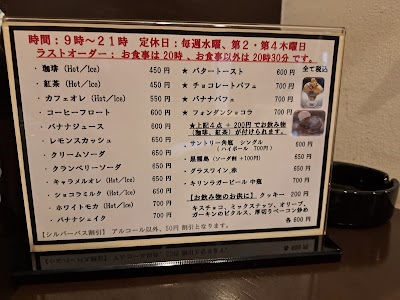 時間：9時〜21時 定休日：毎週水曜、第2・第4木曜日
ラストオーダー：お食事は20時、お食事以外は20時30分です。
全て税込
・ 珈琲 (Hot/Ice) 450円
・ 紅茶 (Hot/Ice) 450円
・ カフェオレ (Hot/Ice) 550円
・ コーヒーフロート 600円
・ バナナジュース 600円
・ レモンスカッシュ 650円
・ クリームソーダ 650円
・ クランベリーソーダ 650円
・ キャラメルオレ (Hot/Ice) 650円
・ ショコラミルク (Hot/Ice) 650円
・ ホワイトモカ (Hot/Ice) 700円
・ バナナシェイク 700円
【シルバーパス割引】 アルコール以外、50円 割引となります。
★ バタートースト 600円
★ チョコレートパフェ 700円
★ バナナパフェ 700円
★ フォンダンショコラ 700円
★上記4点 + 200円でお飲み物
(珈琲、紅茶) が付けられます。
・サントリー角瓶 シングル 600円
(ハイボール 700円)
・黒霧島 (ソーダ割 +100円) 650円
・グラスワイン,赤 650円
・キリンラガービール 中瓶 700円
【お飲み物のお供に】 クッキー 200円
キスチョコ、ミックスナッツ、オリーブ、
ガーキンのピクルス、厚切りベーコン炒め
各 600円